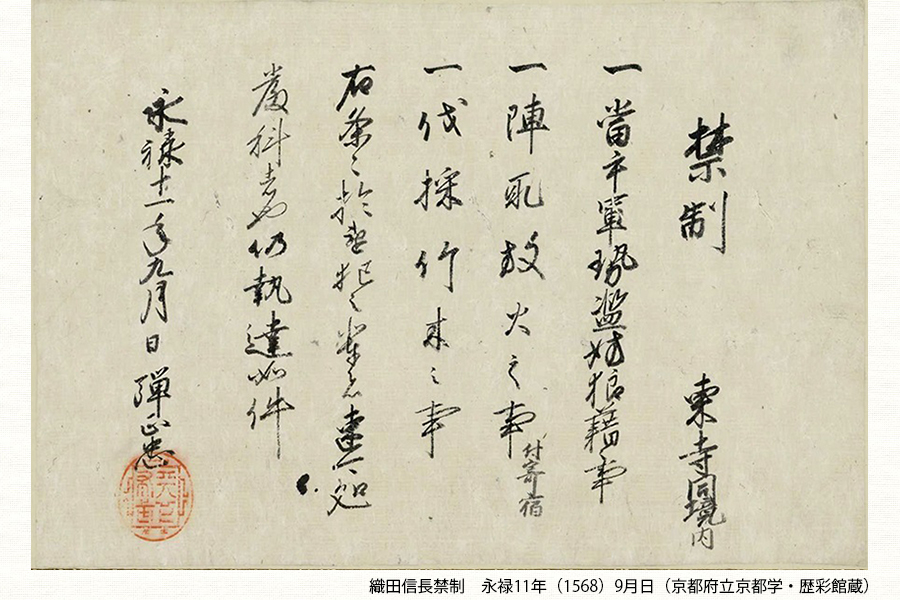 禁制　東寺同境内
一當手軍勢濫妨狼藉事
一陣取放火之事 付寄宿
一伐採竹木之事
右条々於違犯之輩者速可処
厳科者也仍執達如件
永禄十一年九月日 弾正忠
織田信長禁制　永禄11年（1568）9月日（京都府立京都学・歴彩館蔵）